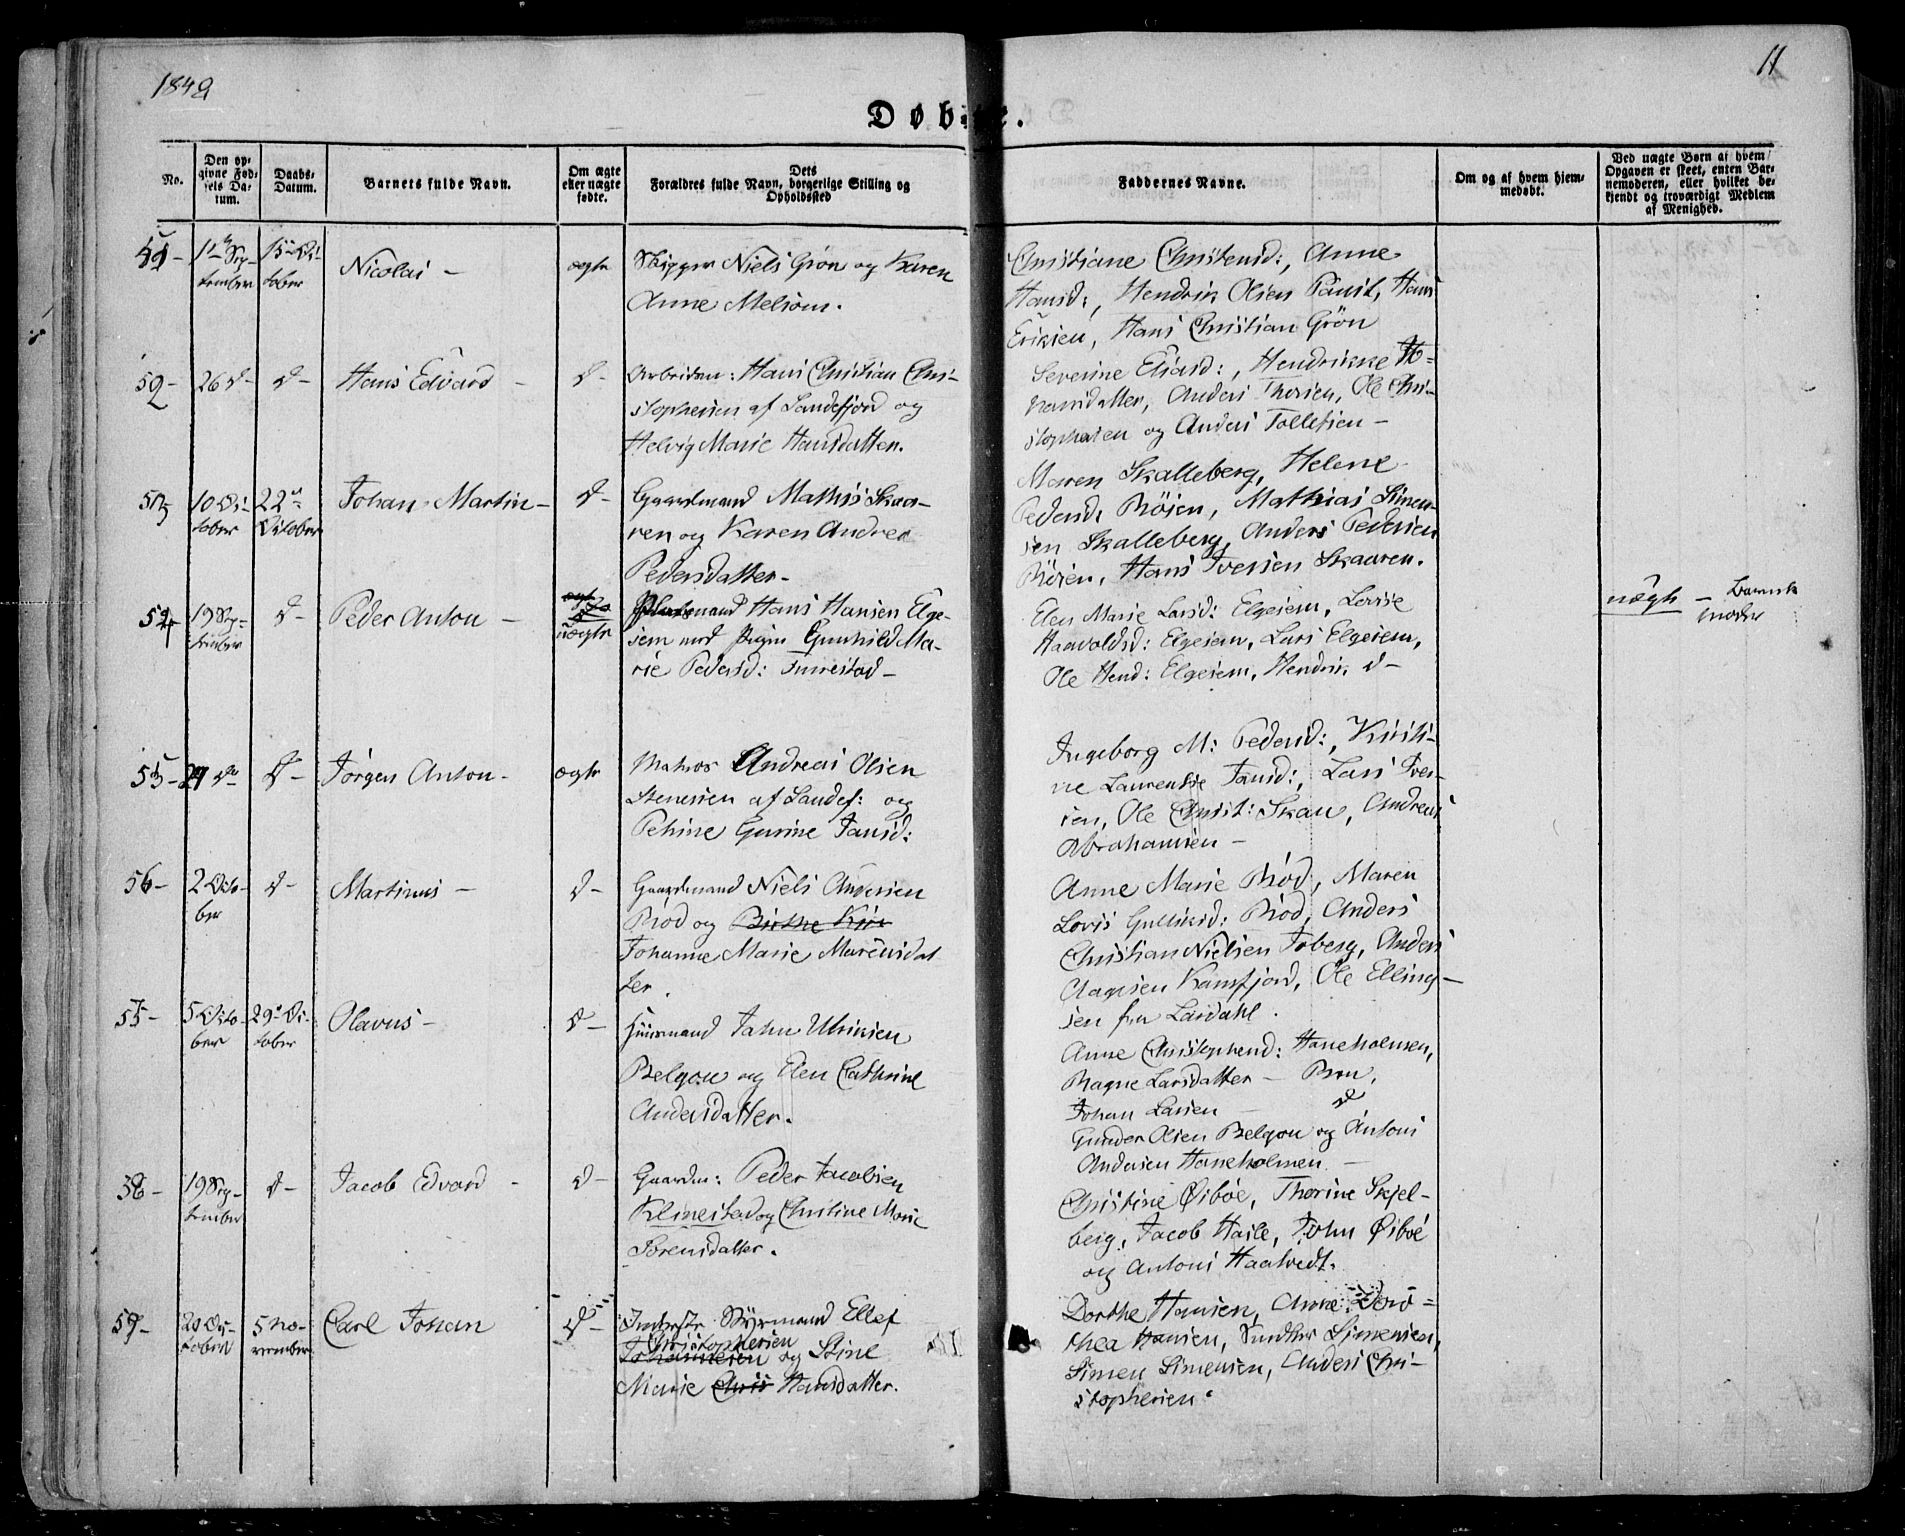 1842
11
Døbte.
No.
Den op-
givne Fød-
sels Da-
tum.
Daabs-
Datum.
Barnets fulde Navn.
Om ægte
eller uægte
fødte.
Dets
Forældres fulde Navn, borgerlige Stilling og
Opholdssted
Faddernes Navne.
Om og af hvem hjem-
medøbt.
Ved uægte Børn af hvem
Opgaven er skeet, enten Bar-
nemoderen, eller hvilket be-
kjendt og troværdigt Medlem
af Menighed.
51 -
Sep-
tember
15 Oc-
tober
Nicolai -
ægte
Skipper Niels Grøn og Karen
Anne Melsom.
Christiane Christensd:, Anne
Hansd:, Hendrik Olsen Hans
Eriksen, Hans Christian Grøn
52 -
26 d -
d -
Hans Edvard -
d -
Arbeidsm: Hans Christian Chri-
stophersen af Sandefjord og
Helvig Marie Hansdatter.
Severine Eliasd:, Hendrikke
hansdatter, Anders Thorsen, Ole Chri-
stophersen og Anders Tollefsen -
53
10 Oc-
tober
22
October
Johan Martin -
d -
Gaardmand Mathis Skaa-
ren og Karen Andrea
Pedersdatter -
Maren Skalleberg, Helene
Pedersd: Røien, Mathias Simen-
sen Skalleberg, Anders Pedersen
Røien, Hans Iversen Skaaren.
54
19 Sep-
tember
d -
Peder Anton -
ægte
uægte
Hans Hansen Elge-
sem med Pigen Gunhild Ma-
rie Pedersd: Furrestad -
Elen Marie Larsd: Elgesem, Lovise
Haavoldsd: Elgesem, Lars Elgesem,
Ole Hend: Elgesem, Hendrik d -
uægte - Barnets
moder
55 -
d -
Jørgen Anton -
ægte
Matros Andreas Olsen
Stenersen af Sandef: og
Petrine Gurine Jansd:
Ingeborg M: Pedersd:, Kristi-
ne Laurentse Jansd:, Lars Iver-
sen, Ole Christ: Skau, Andreas
Abrahamsen -
56 -
2 Octo-
ber
d -
Martinus -
d -
Gaardmand Niels Andersen
Rød og Birthe Kir
Johanne Marie Marensdat
ter.
Anne Marie Rød, Maren
Lovis Gulliksd: Rød, Anders
Christian Nielsen Toberg, Anders
Aagesen Kamfjord, Ole Elling-
sen fra Lardahl.
55 -
5 Octo-
ber
29 Oc-
tober
Olavus -
d -
Huusmand Jahn Ulriksen
Belgau og Elen Cathrine
Andersdatter.
Anne Christophersd: Haneholmen,
Ragne Larsdatter - Bru,
Johan Larsen - d
Gunder Olsen Belgau og Antoni
Andersen Haneholmen. -
58 -
19 Sep-
tember
d -
Jacob Edvard -
d -
Gaardm: Peder Jacobsen
Klinestad og Christine Marie
Sørensdatter.
Christine Øibøe, Thorine Skjel-
berg, Jacob Hasle, John Øibøe
og Antoni Haatvedt.
59 -
20 Oc-
tober
5 No-
vember
Carl Johan
d -
Styrmand Ellef
Christophersen
Johannesen og Stine
Marie Chris Hansdatter.
Dorthe Hansen, Anne Doro-
thea Hansen, Simensen,
Simen Simensen, Anders Chri-
stophersen.